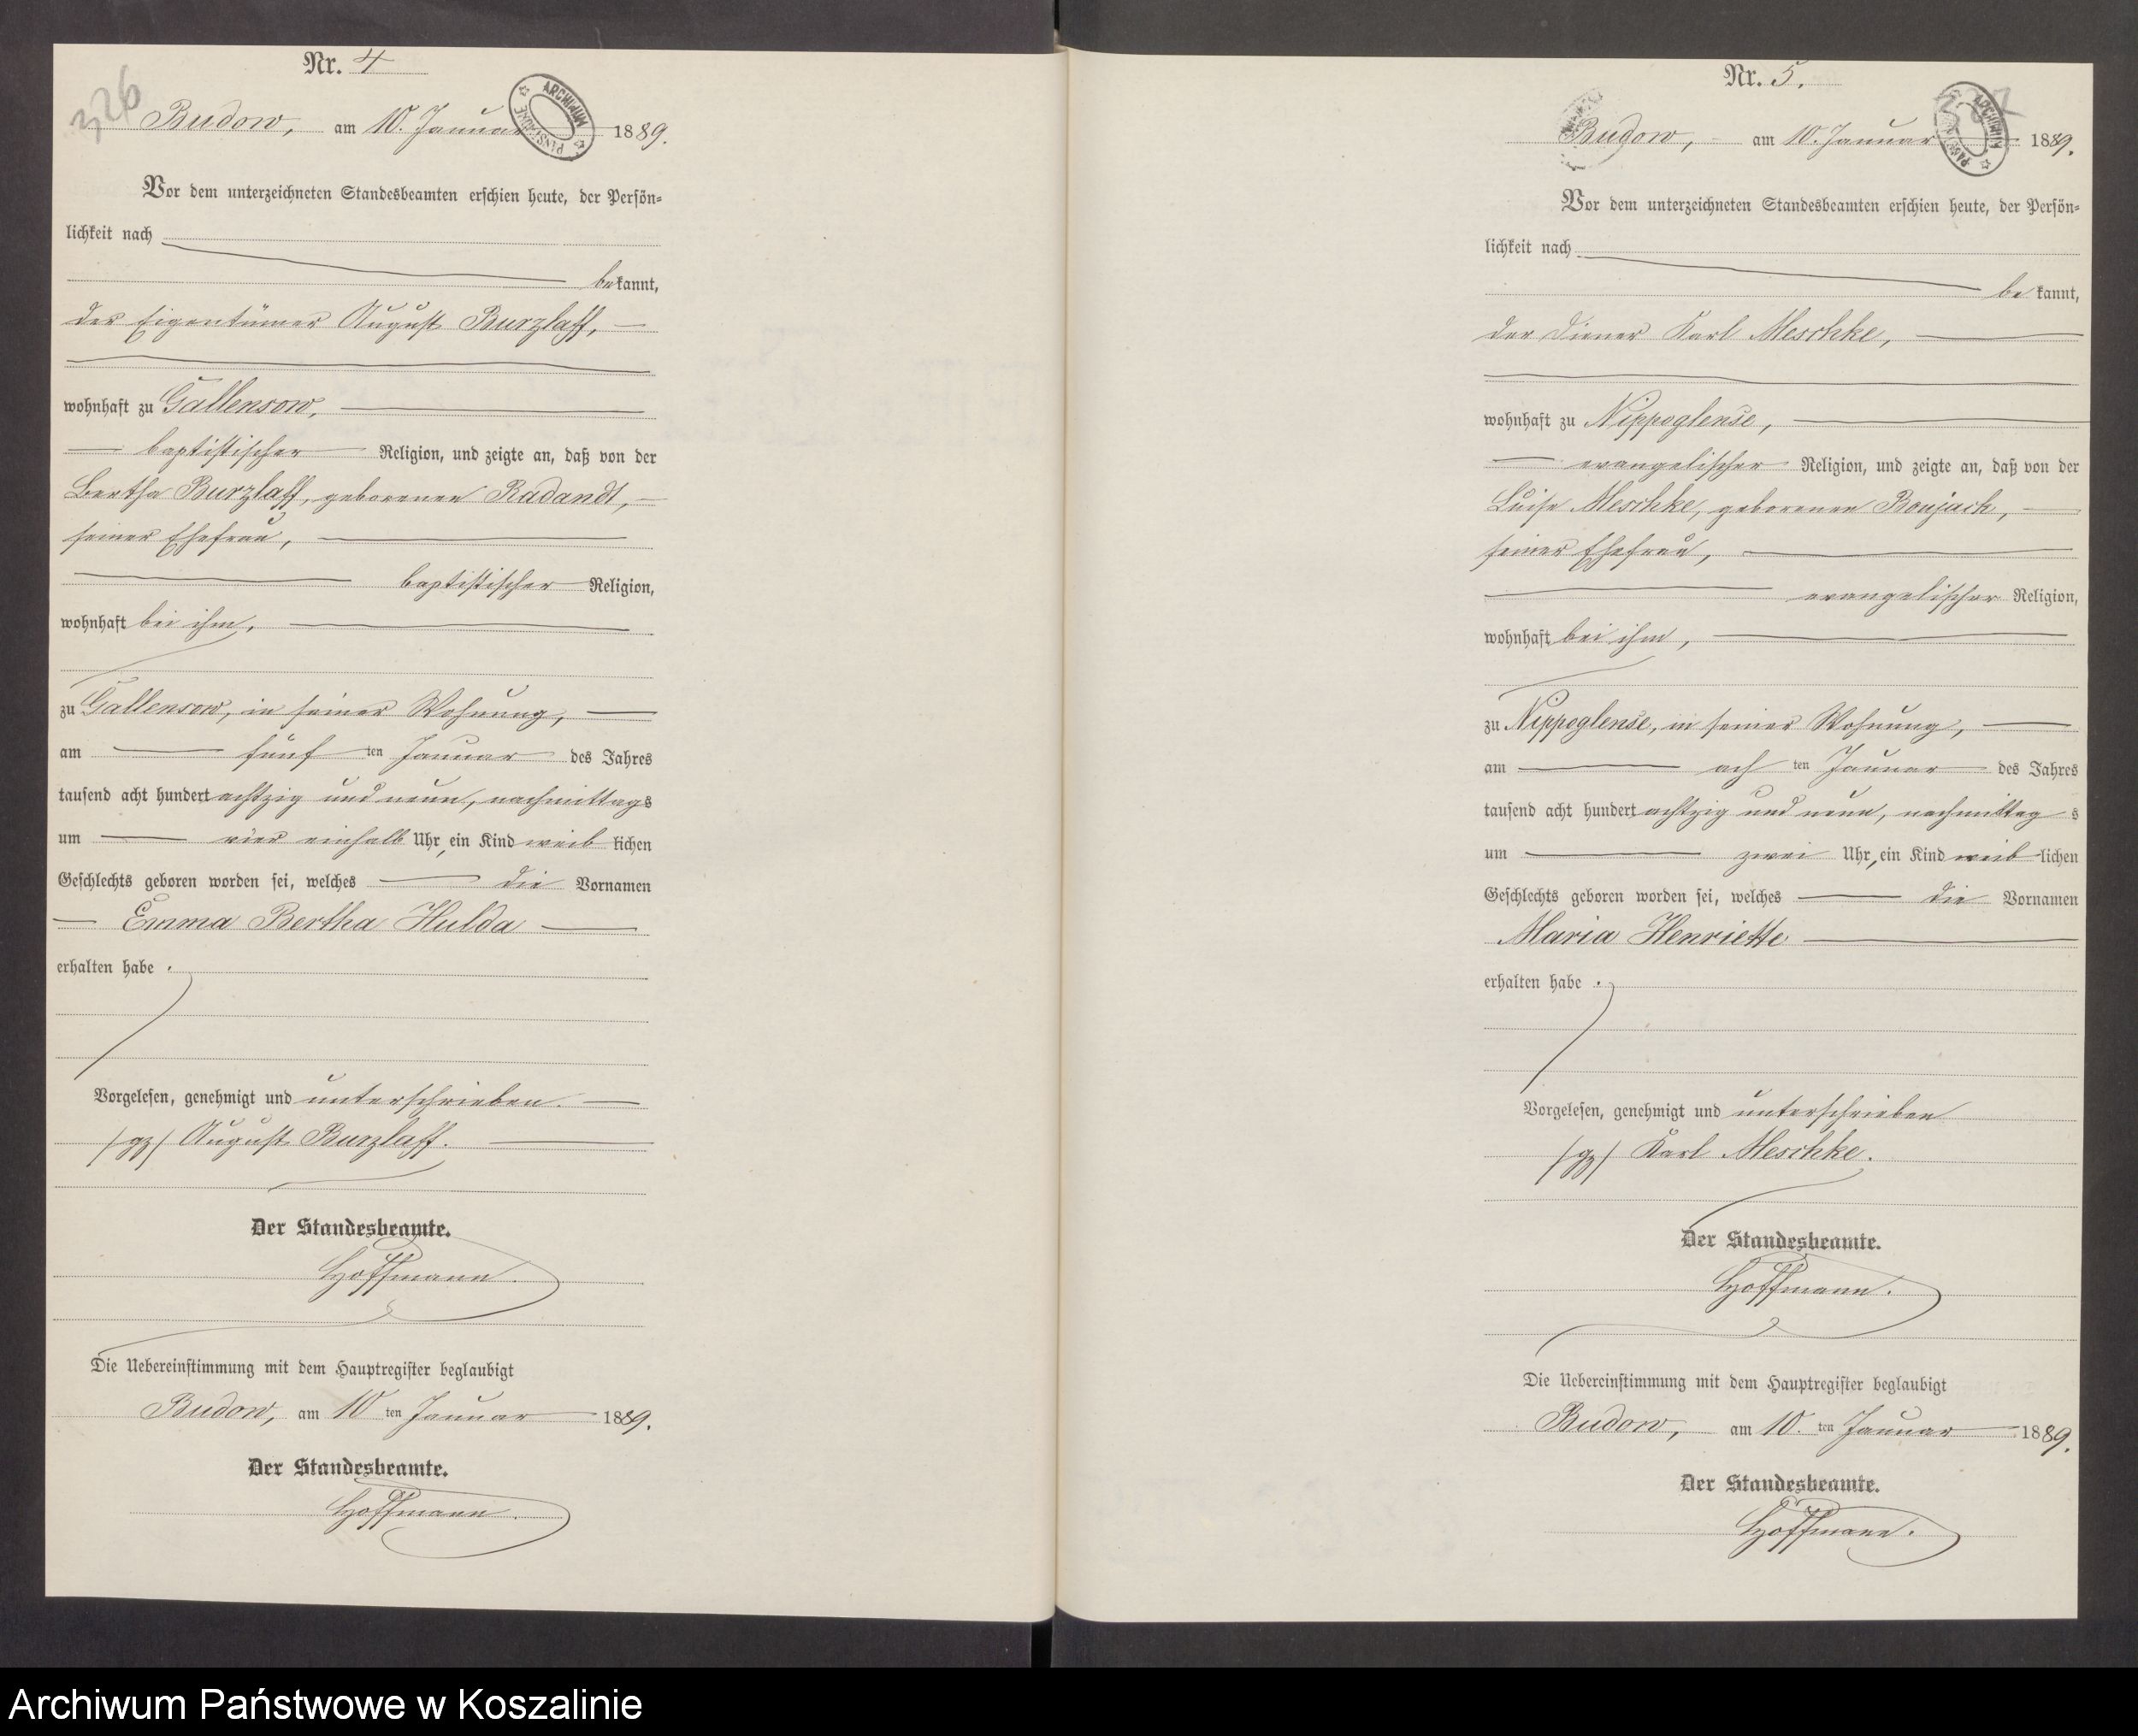 Nr. 4
326
Budow, am 10. Januar 1889.
ARCHIWUM PAŃSTWOWE
Vor dem unterzeichneten Standesbeamten erschien heute, der Persön=
lichkeit nach
bekannt,
der Eigentümer August Burzlaff,
wohnhaft zu Gallensow,
baptistischer Religion, und zeigte an, daß von der
Bertha Burzlaff, geborenen Radandt,
seiner Ehefrau,
baptistischer Religion,
wohnhaft bei ihm,
zu Gallensow, in seiner Wohnung,
am fünf ten Januar des Jahres
tausend acht hundert achtzig und neun, nachmittags
um vier einhalb Uhr, ein Kind weib lichen
Geschlechts geboren worden sei, welches die Vornamen
Emma Bertha Hulda
erhalten habe.
Vorgelesen, genehmigt und unterschrieben.
/gz/ August Burzlaff.
Der Standesbeamte.
Hoffmann.
Die Uebereinstimmung mit dem Hauptregister beglaubigt
Budow, am 10 ten Januar 1889.
Der Standesbeamte.
Hoffmann.
Nr. 5.
Budow, am 10. Januar 1889.
Vor dem unterzeichneten Standesbeamten erschien heute, der Persön=
lichkeit nach
bekannt,
der Diener Karl Meschke,
wohnhaft zu Nippoglense,
evangelischer Religion, und zeigte an, daß von der
Luise Meschke, geborenen Bonjack,
seiner Ehefrau,
evangelischer Religion,
wohnhaft bei ihm,
zu Nippoglense, in seiner Wohnung,
am ach ten Januar des Jahres
tausend acht hundert achtzig und neun, nachmittag s
um zwei Uhr, ein Kind weib lichen
Geschlechts geboren worden sei, welches die Vornamen
Maria Henriette
erhalten habe.
Vorgelesen, genehmigt und unterschrieben
/gz/ Karl Meschke.
Der Standesbeamte.
Hoffmann.
Die Uebereinstimmung mit dem Hauptregister beglaubigt
Budow, am 10. ten Januar 1889.
Der Standesbeamte.
Hoffmann.
Archiwum Państwowe w Koszalinie